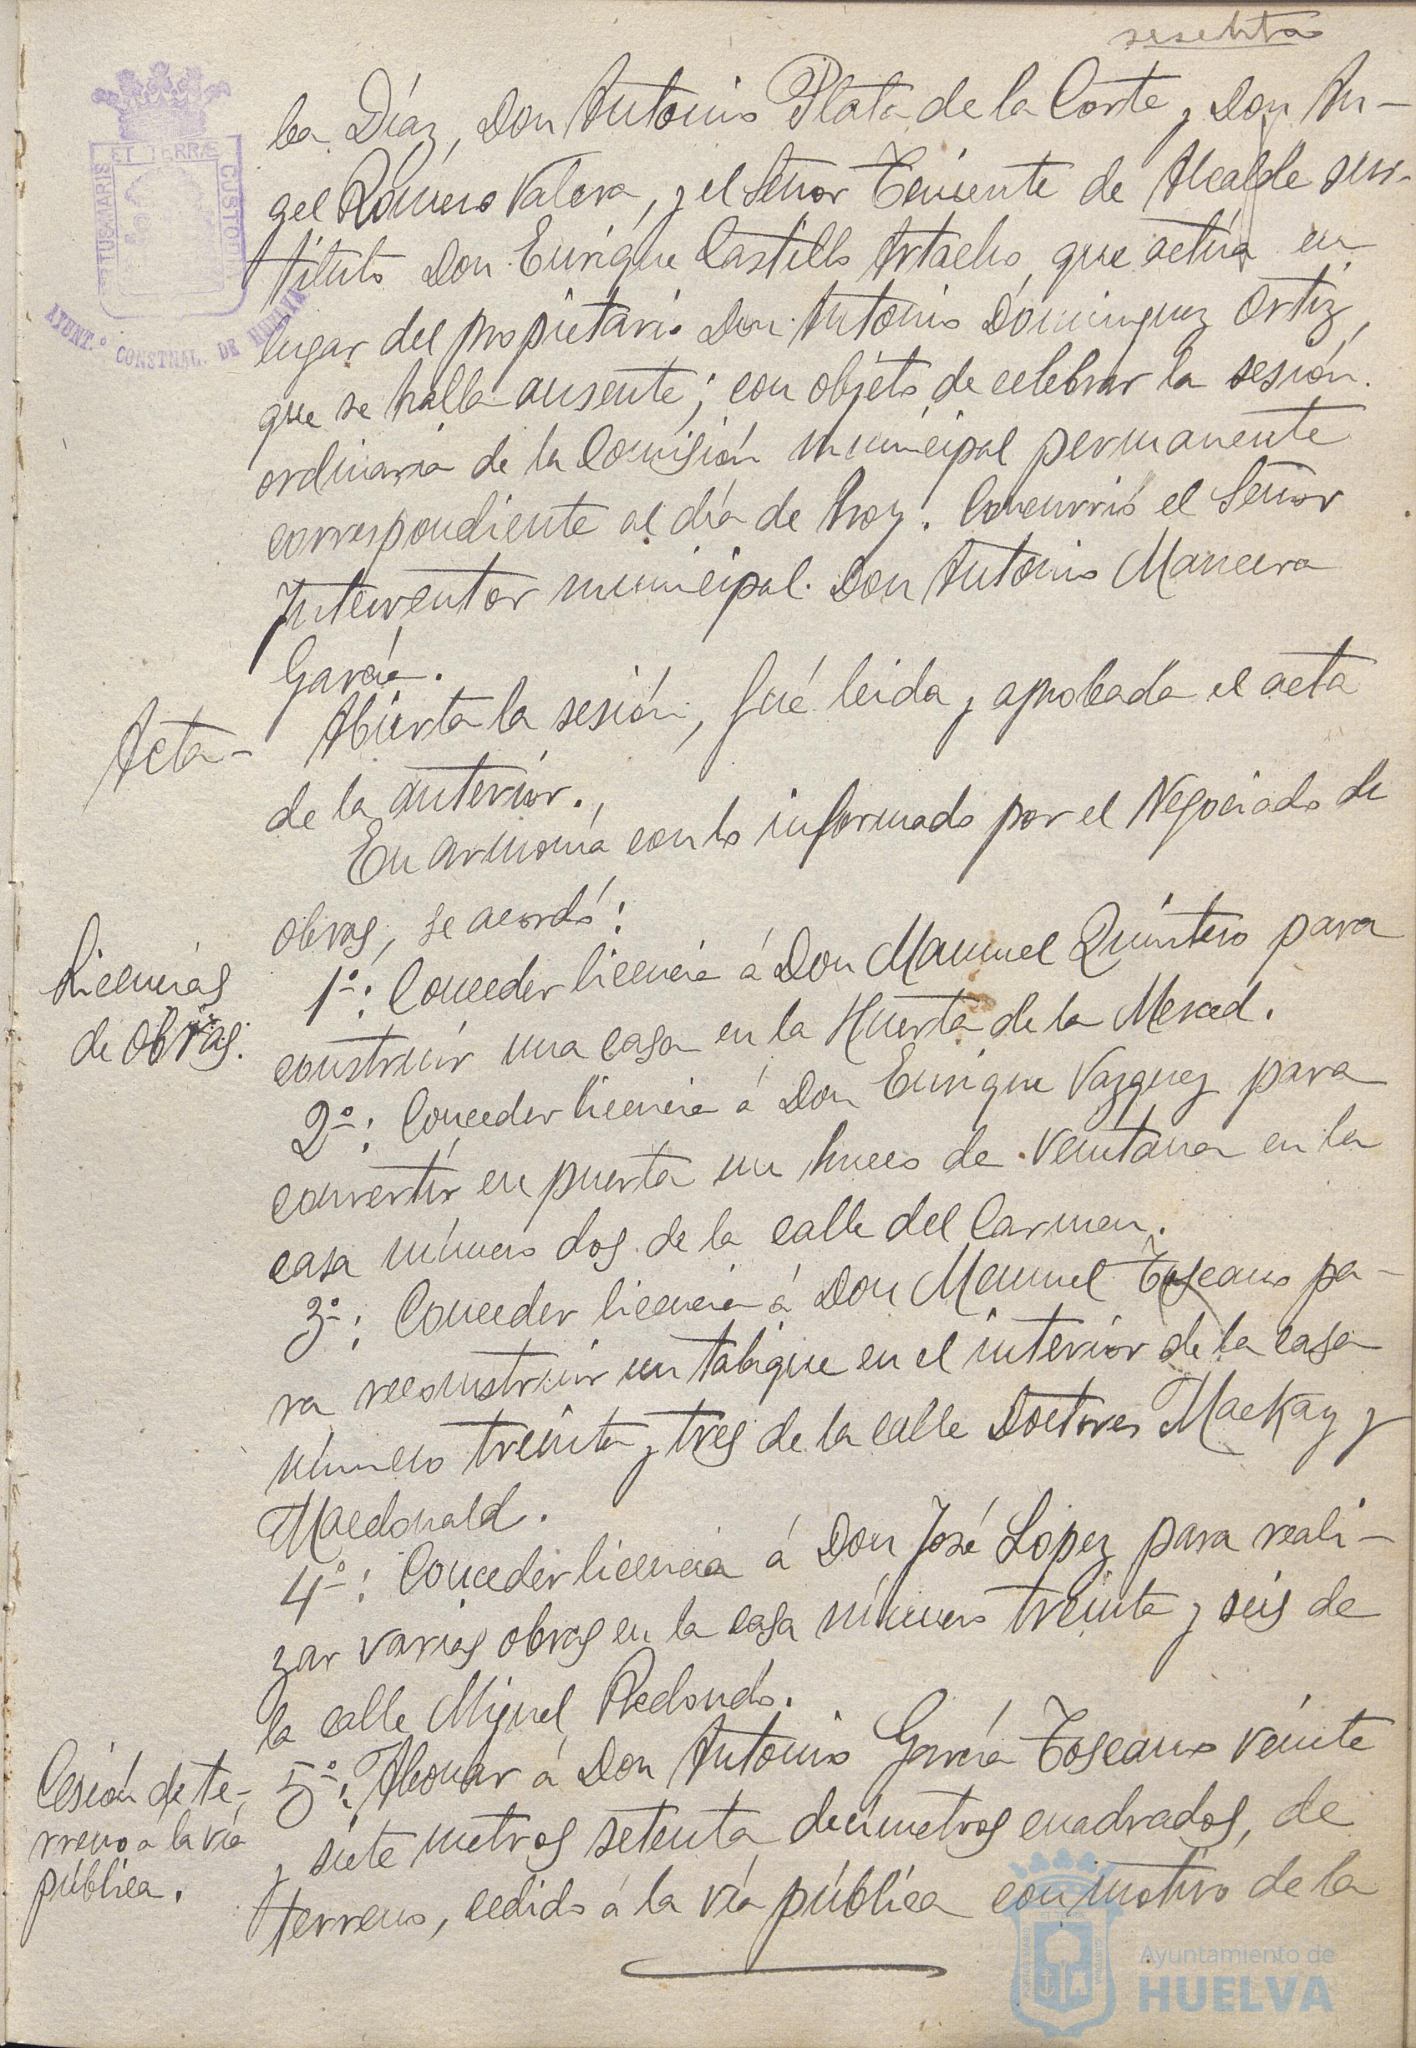 sesenta
ba Díaz, Don Antonio Plata de la Corte y Don An-
gel Romero Valera, y el Señor Teniente de Alcalde sus-
tituto Don Enrique Castillo Artacho, que actúa en
lugar del propietario Don Antonio Domínguez Ortiz,
que se halla ausente; con objeto de celebrar la sesión
ordinaria de la Comisión municipal permanente
correspondiente al día de hoy. Concurrió el Señor
Interventor municipal Don Antonio Mancera
García.
Acta- Abierta la sesión, fué leida y aprobada el acta
de la anterior.
En armonía con lo informado por el Negociado de
obras, se acordó:
Licencias
de obras.
1º: Conceder licencia á Don Manuel Quintero para
construir una casa en la Huerta de la Merced.
2º: Conceder licencia á Don Enrique Vazquez para
convertir en puerta un hueco de ventana en la
casa número dos de la calle del Carmen.
3º: Conceder licencia á Don Manuel Toscano pa-
ra reconstruir un tabique en el interior de la casa
número treinta y tres de la calle Doctores MacKay y
Macdonald.
4º: Conceder licencia á Don José Lopez para reali-
zar varias obras en la casa número treinta y seis de
la calle Miguel Redondo.
Cesión de te-
rreno a la vía
pública.
5º: Abonar á Don Antonio García Toscano veinte
y siete metros setenta decímetros cuadrados, de
terreno, cedido á la vía pública con motivo de la
ET TERRÆ
CUSTO
TUS MARIS
AYUNT.º CONSTNAL. DE HUELVA
Ayuntamiento de
HUELVA